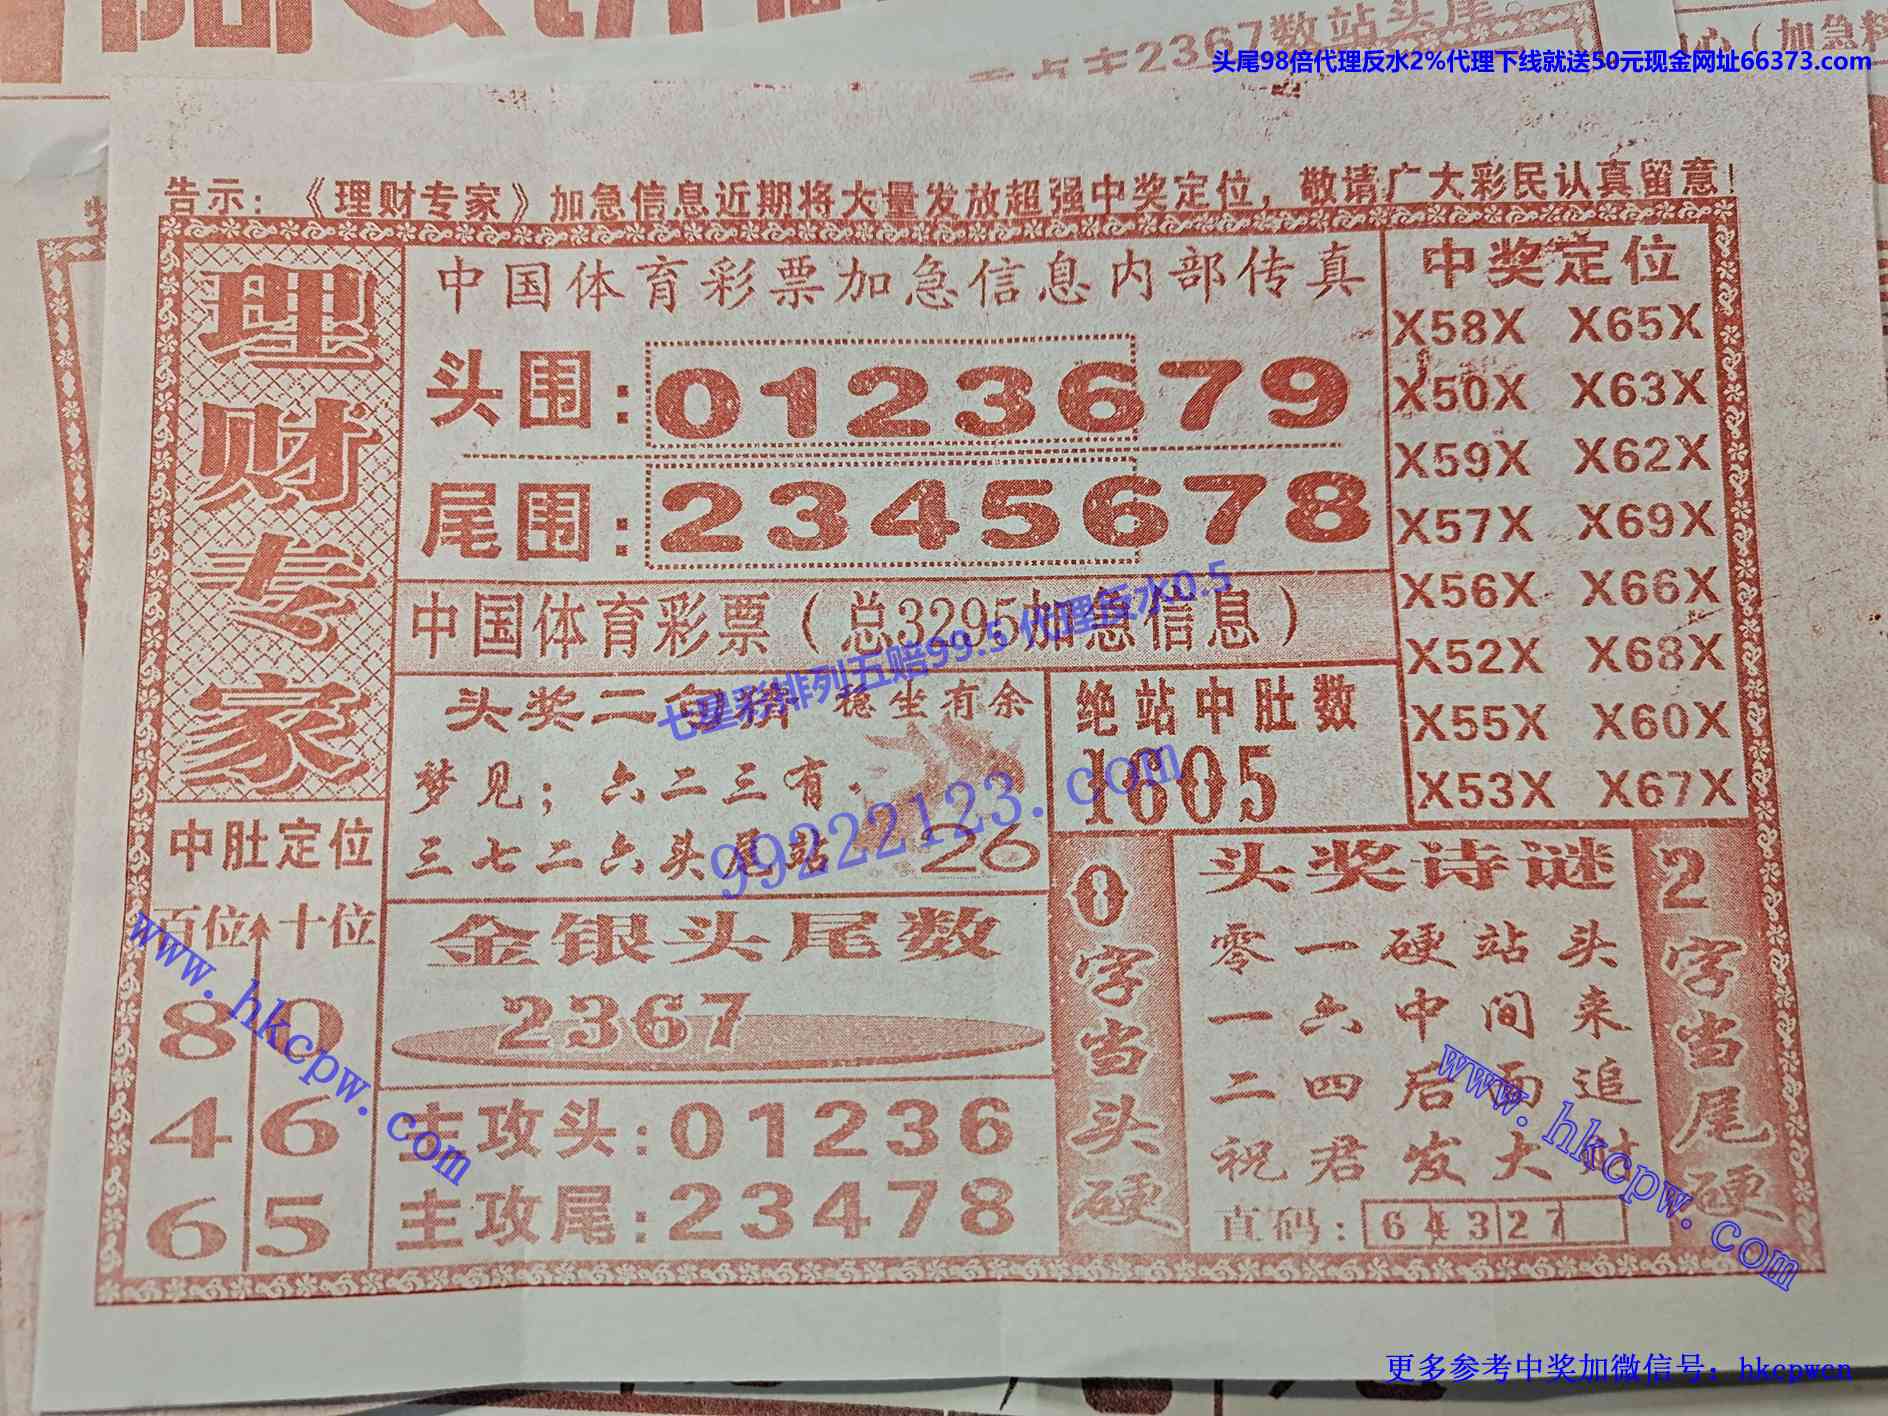 重点主2367数站头尾。
心（加急料
头尾98倍代理反水2%代理下线就送50元现金网址66373.com
告示：《理财专家》加急信息近期将大量发放超强中奖定位，敬请广大彩民认真留意！
理财专家
中国体育彩票加急信息内部传真
头围：0123679
尾围：2345678
中国体育彩票（总3295加急信息）
七星彩排列五赔99.5 代理反水0.5
中奖定位
X58X X65X
X50X X63X
X59X X62X
X57X X69X
X56X X66X
X52X X68X
X55X X60X
X53X X67X
稳坐有余
梦见；六二三有.
三七二六头尾站
26
99222123.com
绝站中肚数
1605
中肚定位
百位 十位
8 0
4 6
6 5
www.hkcpw.com
金银头尾数
2367
主攻头：01236
主攻尾：23478
0字当头硬
头奖诗谜
零一硬站头
一六中间来
二四后面追
祝君发大财
直码：64327
2字当尾硬
www.hkcpw.com
更多参考中奖加微信号：hkcpwcn